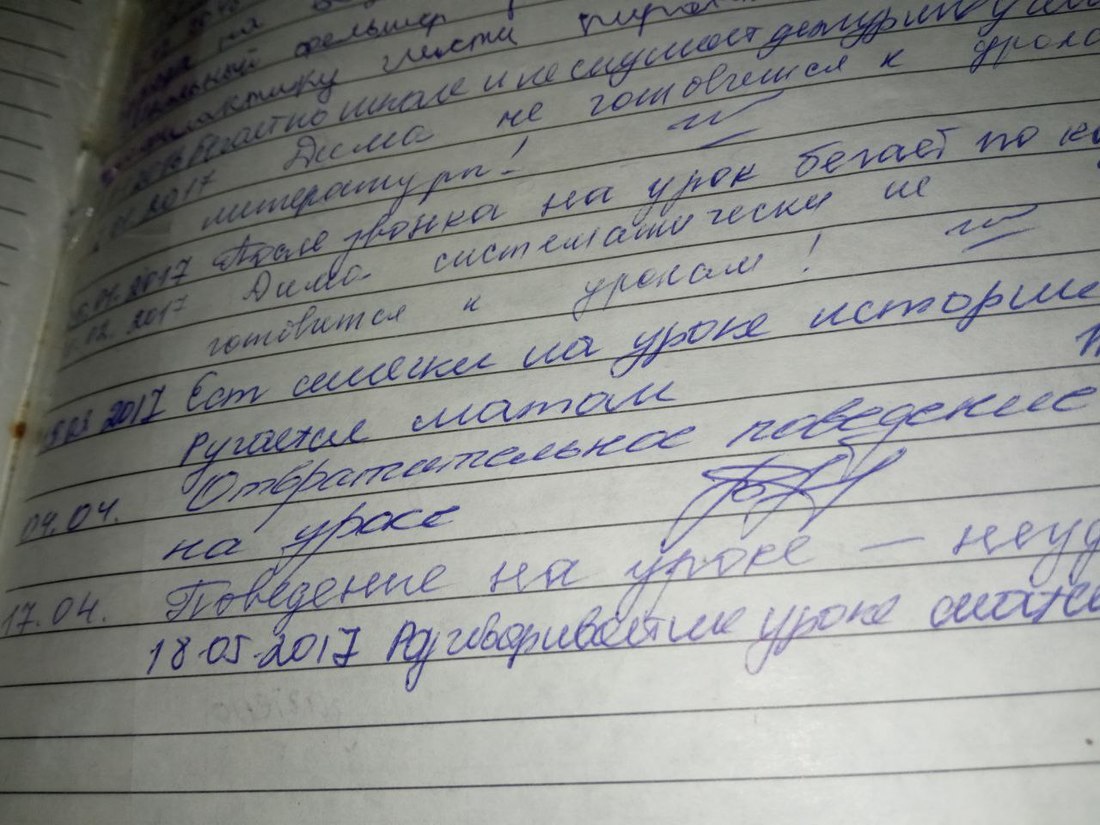 фельшер
Бегает по школе и не слушает дежурного
2017 Дима не готовится к урока
литературы!
2017 После звонка на урок бегает по ко
12. 2017 Дима систематически не
готовится к урокам!
2017 Ест семечки на уроке истории
Ругается матом
04.04. Отвратительное поведение
на уроке
17.04. Поведение на уроке – неуд
18.05.2017 Разговаривает на уроке